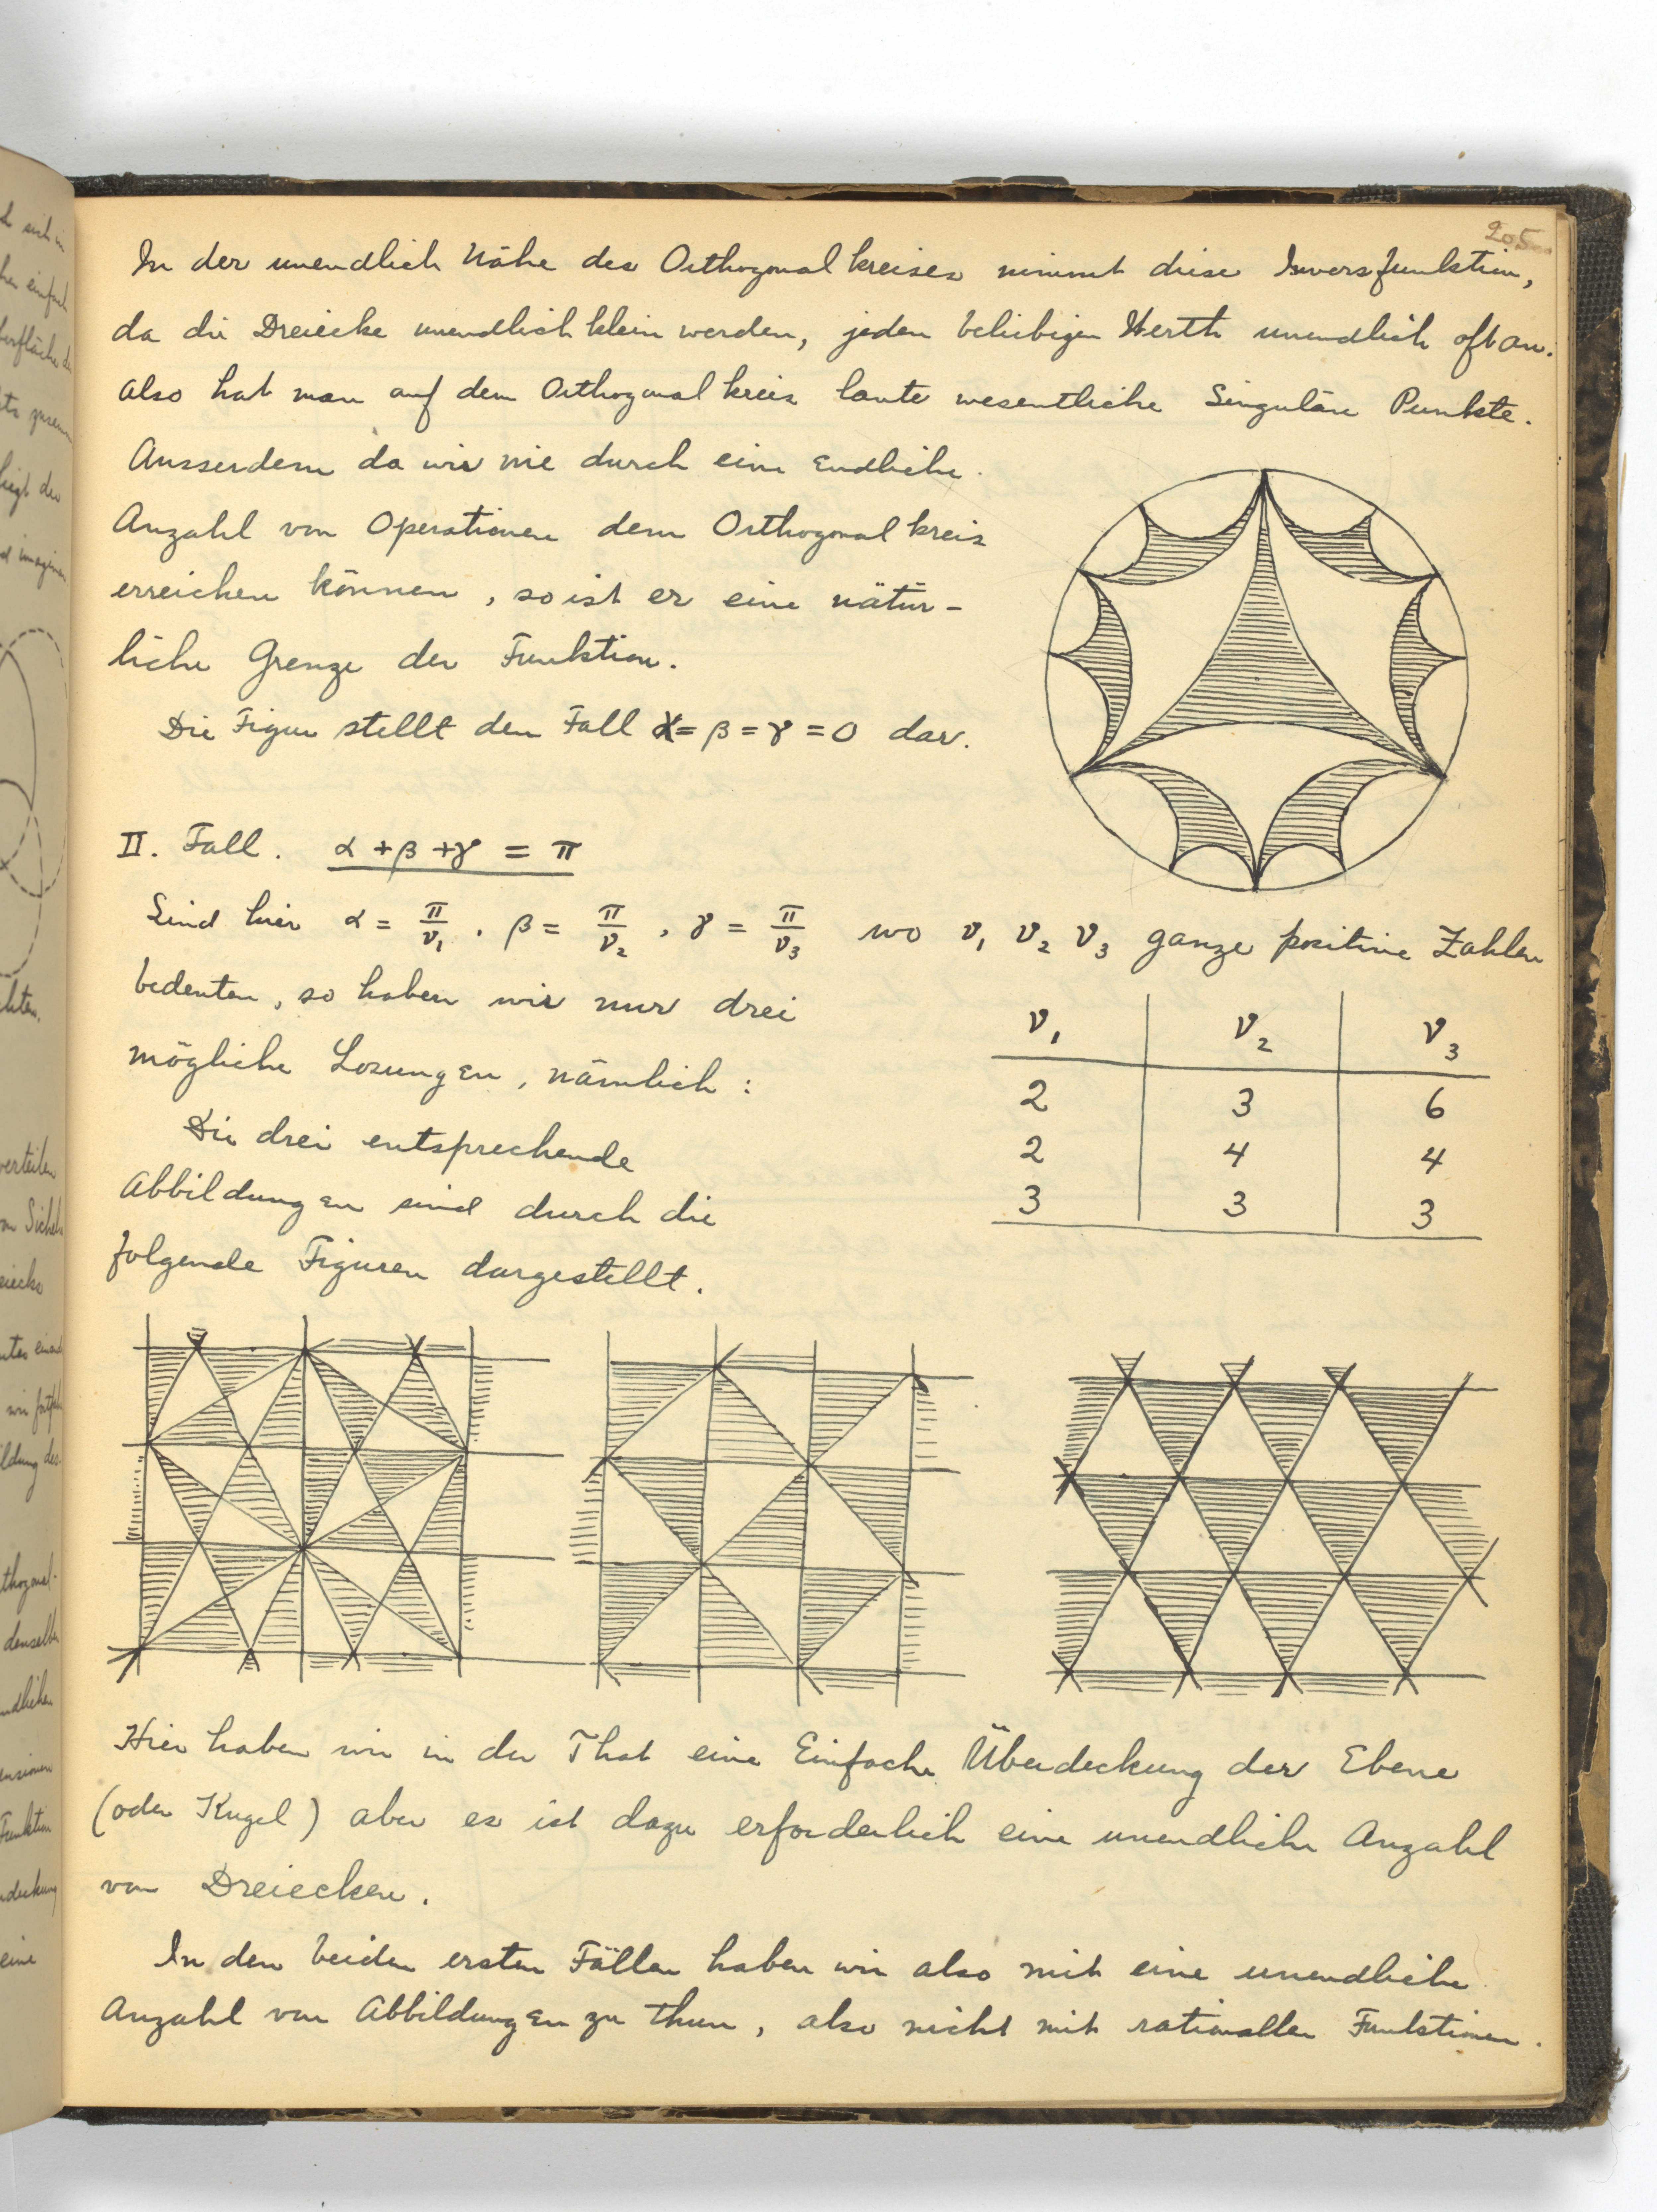 205
In der unendlich Nähe des Orthogonalkreises nimmt diese Inversfunktion,
da die Dreiecke unendlich klein werden, jeden beliebigen Werth unendlich oft an.
Also hat man auf dem Orthogonalkreis laute wesentliche Singuläre Punkte.
Ausserdem da wir nie durch eine Endliche
Anzahl von Operationen dem Orthogonalkreis
erreichen können, so ist er eine nätür-
liche Grenze der Funktion.
Die Figur stellt den Fall α = β = γ = 0 dar.
II. Fall. α + β + γ = π
Sind hier α = π/ν₁, β = π/ν₂, γ = π/ν₃ wo ν₁ ν₂ ν₃ ganze positive Zahlen
bedeuten, so haben wir nur drei
mögliche Losungen, nämlich:
ν₁ ν₂ ν₃
2 3 6
2 4 4
3 3 3
Die drei entsprechende
Abbildungen sind durch die
folgende Figuren dargestellt.
Hier haben wir in der That eine Einfache Überdeckung der Ebene
(oder Kugel) aber es ist dazu erforderlich eine unendliche Anzahl
von Dreiecken.
In den beiden ersten Fällen haben wir also mit eine unendliche
Anzahl von Abbildungen zu thun, also nicht mit rationallen Funktionen.